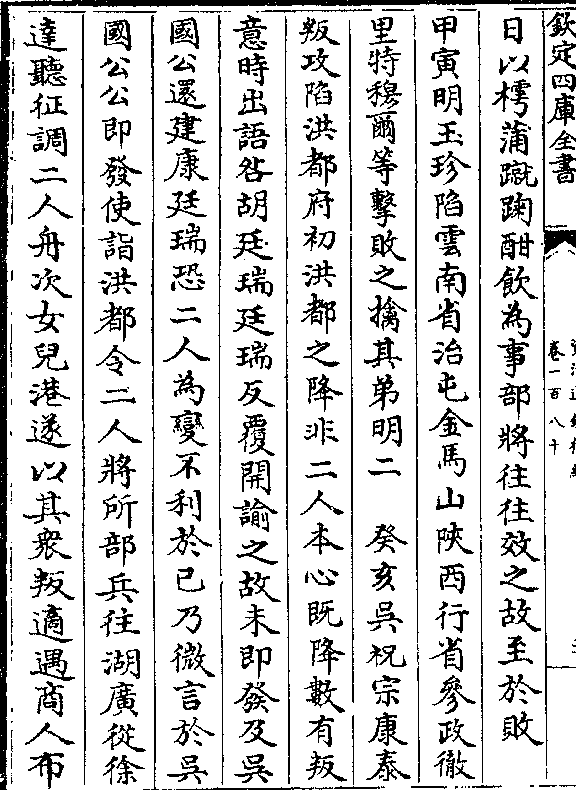 欽定四庫全書
卷一百八十
日以樗蒲蹴踘酣飲為事部將往往效之故至於敗
甲寅明玉珍陷雲南省治屯金馬山陜西行省參政徹
里特穆爾等擊敗之擒其弟明二　癸亥吳祝宗康泰
叛攻陷洪都府初洪都之降非二人本心既降數有叛
意時出語咎胡廷瑞廷瑞反覆開諭之故未即發及吳
國公還建康廷瑞恐二人為變不利於己乃微言於吳
國公公即發使詣洪都令二人將所部兵往湖廣從徐
達聽征調二人舟次女兒港遂以其衆叛適遇商人布